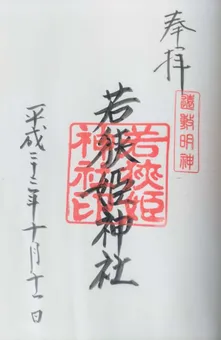 奉拝
遠敷明神
若狭姫神社
若狭姫神社印
平成二十二年十月十一日